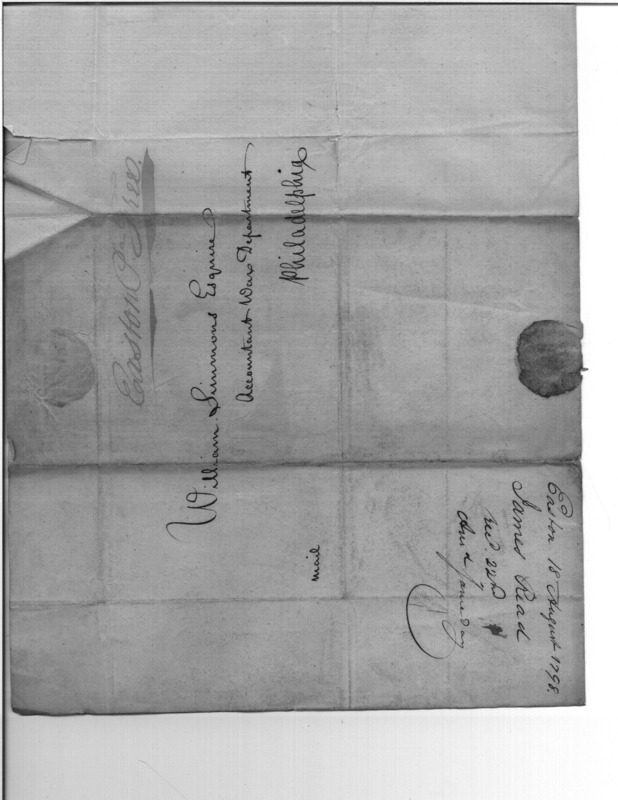 Easton Pa Free.
William Simmons Esquire
Accountant War Department
Philadelphia
mail
Easton 18 August 1798.
James Read
rec'd. 22nd
Ans'd same day